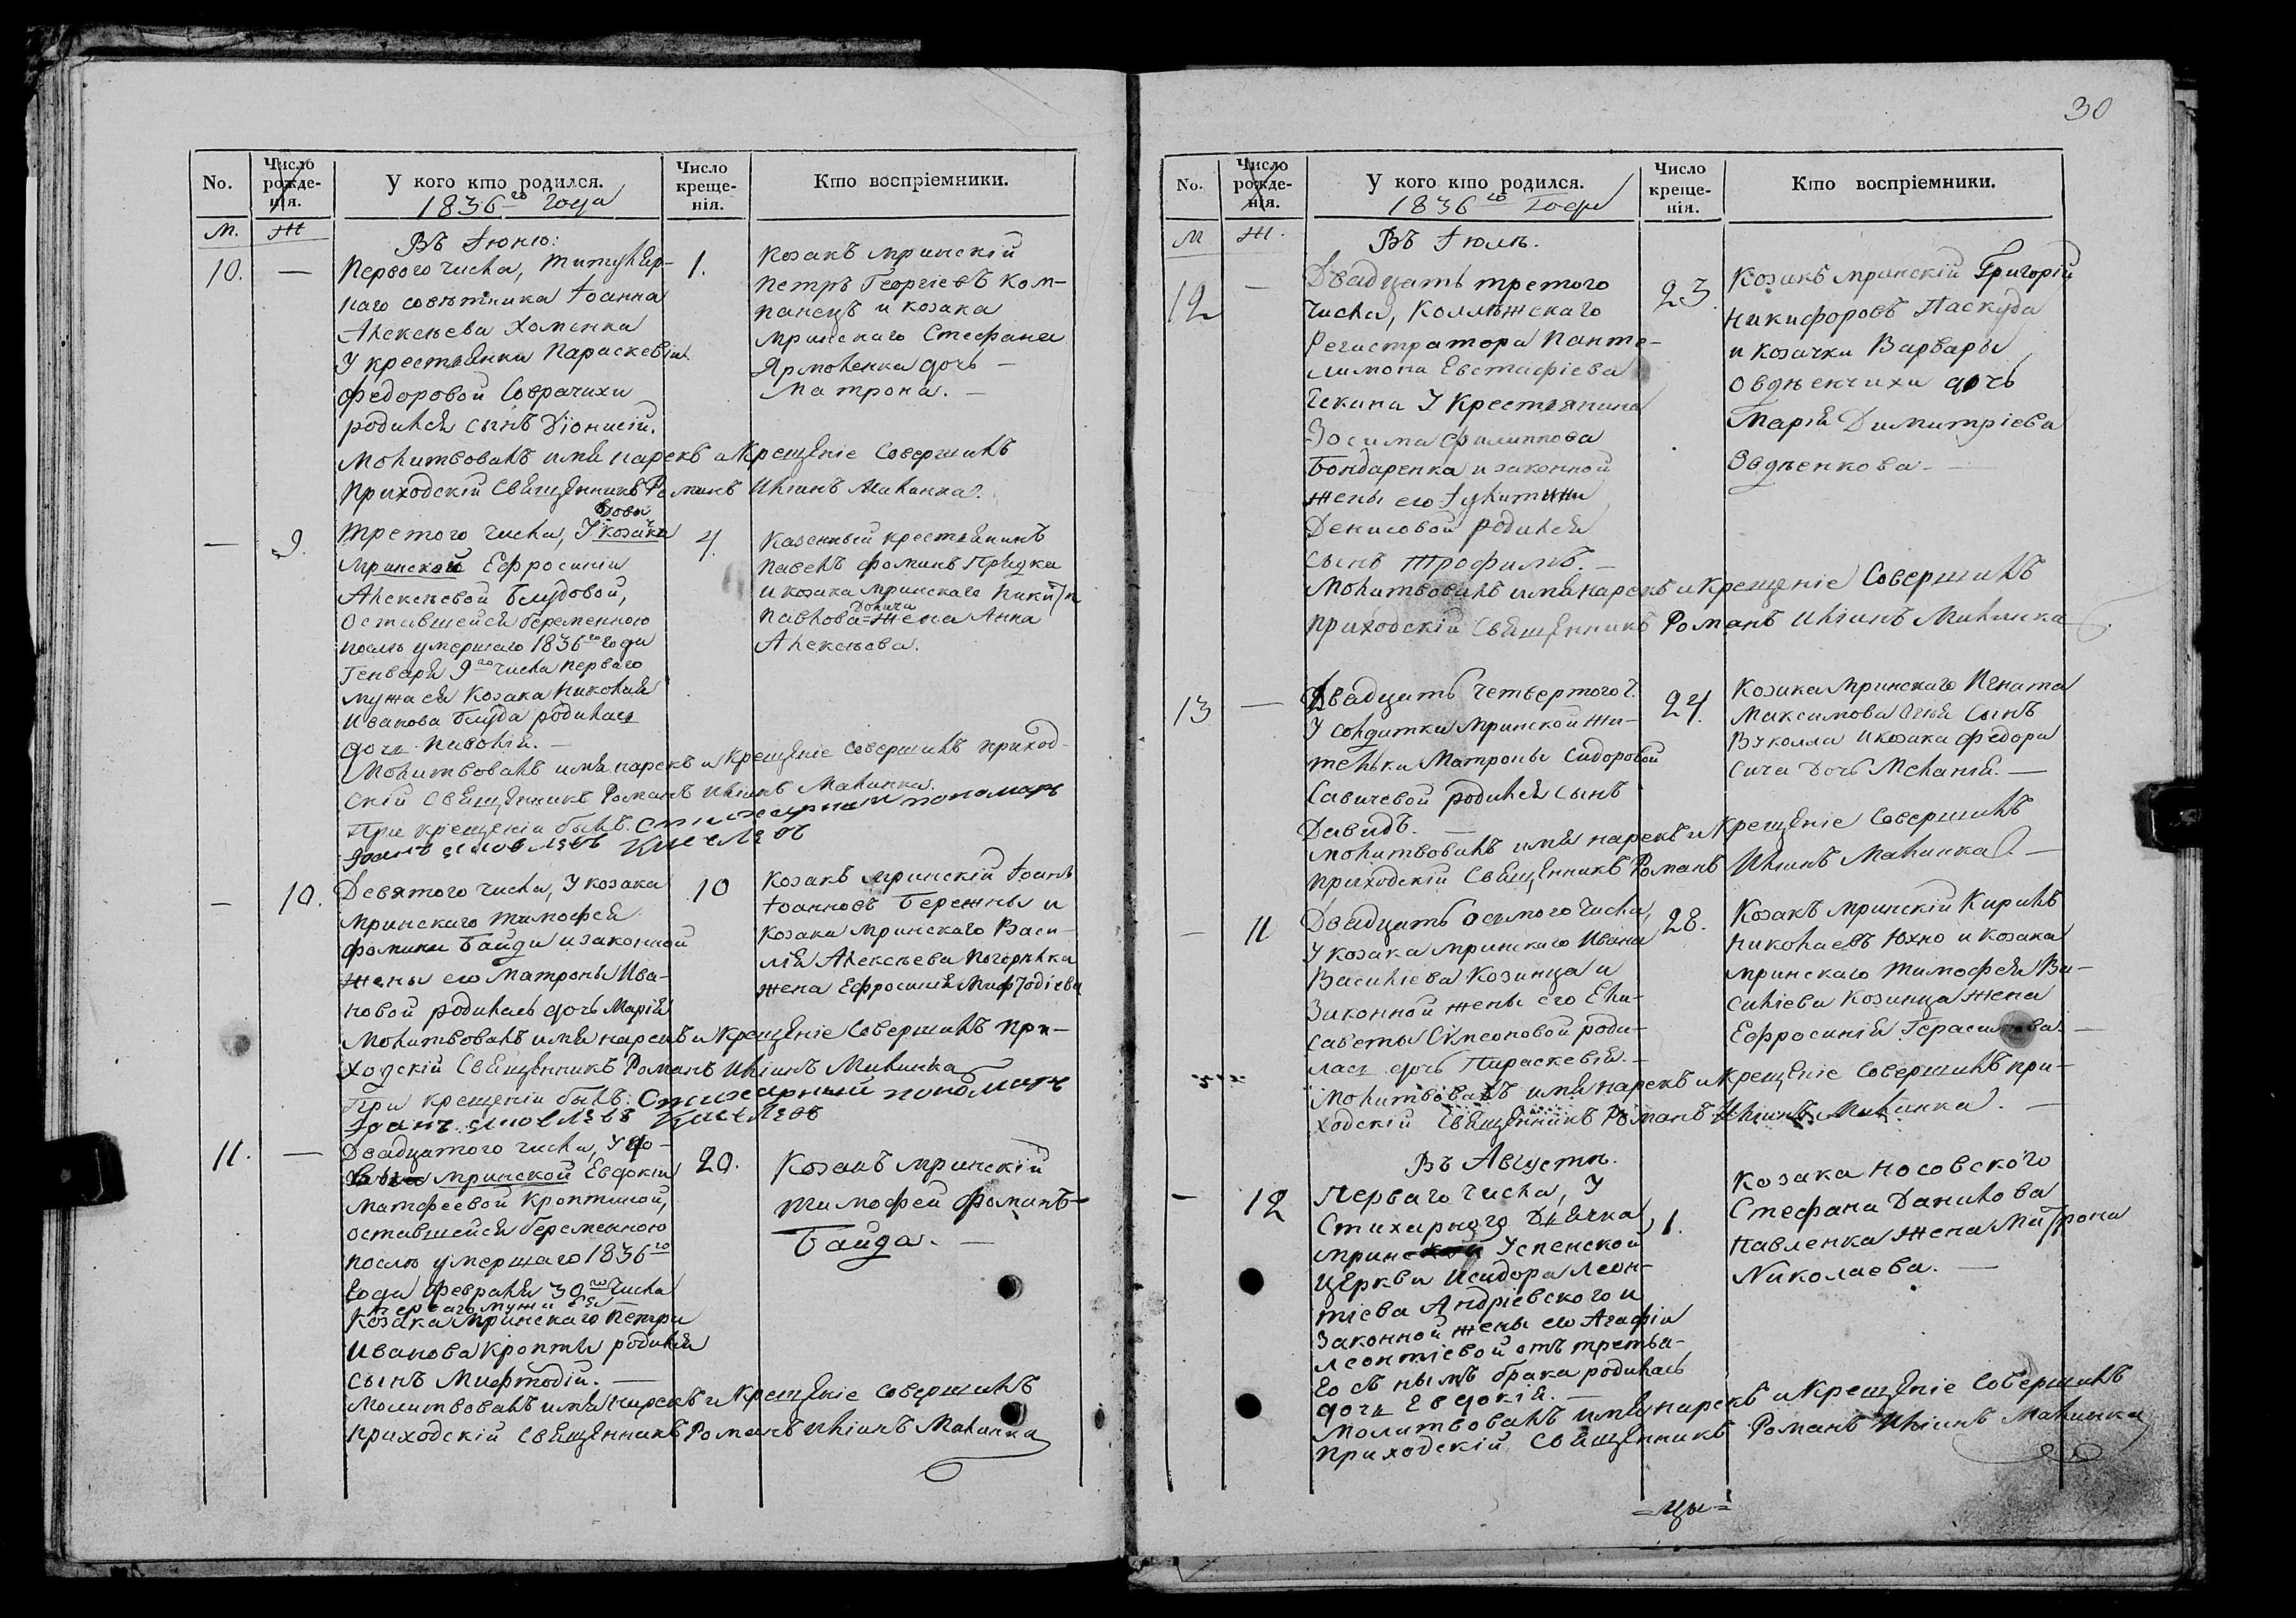 No.
Число рожде-нія.
У кого кто родился.
1836го Года
Число креще-нія.
Кто воспріемники.
М.
Ж
Въ Іюню:
10.
—
Первого числа, Титуляр-
наго совѣтника Іоанна
Алексѣева Хоменка
У крестьянки Параскевіи
Федоровой
родился сынъ Діонисій.
1.
Козакъ мринскій
Петръ Георгіевъ Ком-
панецъ и козака
мринскаго Стефана
Ярмоленка дочь —
Матрона. —
Молитвовалъ имя нарекъ и Крещеніе Совершилъ
приходскій Священникъ Романъ Иліинъ Малинка.
—
9.
Вдовы
Третого числа, У козачки
мринской Ефросиніи
Алексѣевой Блудовой,
оставшейся беременною
послѣ умершаго 1836го года
Генваря 9го числа перваго
мужа ея Козака Николая
Иванова Блуда родилась
дочь
4.
Казенный крестьянинъ
Павелъ Фоминъ
и козака мринскаго Никиты
Павлова жена Анна
Алексѣева.
Молитвовалъ имя нарекъ и Крещеніе совершилъ приход-
скій Священникъ Романъ Иліинъ Малинка.
При крещеніи былъ: Стихарный пономарь
Іоанъ
—
10.
Девятого числа, У козака
Мринскаго Тимофея
Фомина Байди и законной
жены его Матроны Ива-
новой родилась дочь Марія
10
Козакъ мринскій Іоанъ
Іоанновъ Бережны и
Козака мринскаго Васи-
лія Алексѣева Погорѣлка
жена Ефросинія Мифодіева
Молитвовалъ имя нарекъ и Крещеніе Совершилъ при-
ходскій Священникъ Романъ Иліинъ Малинка
При крещеніи былъ: Стихарный пономарь
Іоанъ
11.
—
Двадцатого числа, У вдо-
вы мринской Евдокіи
Матфеевой Кроптиной,
оставшейся беременною
послѣ умершаго 1836го
Года Февраля 30го числа
Перваго мужа ея
Козака мринскаго Петра
Иванова Кропты родился
сынъ Мифтодій. —
20.
Козакъ мринскій
Тимофей Фоминъ-
Байда. —
Молитвовалъ имя нарекъ и Крещеніе совершилъ
приходскій священникъ Романъ Иліинъ Малинка
30
No.
Число рожде-нія.
У кого кто родился.
1836го Года
Число креще-нія.
Кто воспріемники.
М
Ж.
Въ Іюлѣ.
12
—
Двадцать третого
числа, Коллѣжскаго
Регистратора Панте-
лимона Евстафіева
Чекана У Крестьянина
Зосима Филиппова
Бондаренка и законной
жены его Іулиттии
Денисовой родился
сынъ Трофимъ. —
23.
Козакъ мринскій Григорій
Никифоровъ Паскуда
и козачки Варвары
Овдѣенчихи дочь
Марія Димитріева
Овдѣенкова —
Молитвовалъ имя нарекъ и Крещеніе Совершилъ
приходскій Священникъ Романъ Иліинъ Малинка.
13
—
Двадцать четвертого ч.
У солдатки мринской жи-
тельки Матроны Сидоровой
Савичевой родился сынъ
Давидъ. —
24.
Козака мринскаго Игната
Максимова сынъ
Вуколла и козака Федора
Сича дочь Меланія. —
Молитвовалъ имя нарекъ и Крещеніе Совершилъ
приходскій Священникъ Романъ Иліинъ Малинка. —
—
11
Двадцать осьмого числа,
У козака мринскаго Ивана
Василіева Козинца и
Законной жены его Ели-
саветы Симеоновой роди-
лась дочь Параскевія. —
28.
Козакъ мринскій Кирилъ
Николаевъ Юхно и козака
мринскаго Тимофея Ва-
силіева Козинца жена
Ефросинія Герасимова —
Молитвовалъ имя нарекъ и Крещеніе Совершилъ при-
ходскій Священникъ Романъ Иліинъ Малинка. —
Въ Августѣ.
—
12
Перваго числа, У
Стихарного Дьячка
мринской Успенской
Церкви Исидора Леон-
тіева Андріевского и
Законной жены его Агафіи
Леонтіевой отъ третья-
го съ нымъ брака родилась
дочь Евдокія. —
1.
Козака носовского
Стефана Данилова
Павленка жена Матрона
Николаева. —
Молитвовалъ имя нарекъ и Крещеніе Совершилъ
приходскій Священникъ Романъ Иліинъ Малинка
=цы=